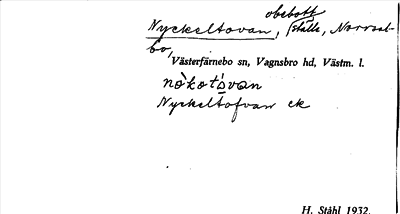 Nyckeltovan, obebott
ställe, Norrsal-
bo,
Västerfärnebo sn, Vagnsbro hd, Västm. l.
Nyckeltofvan ek
H. Ståhl 1932.